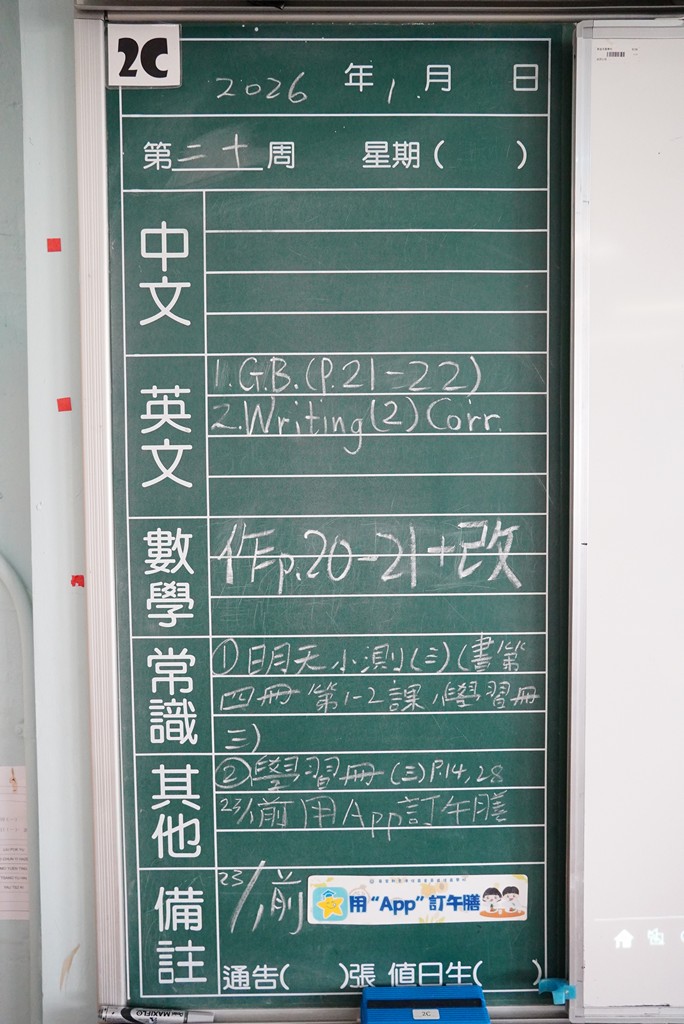 2C
2026 年 1 月 日
第 二十 周 星期( )
中文
英文
1. G.B. (P.21-22)
2. Writing (2) Corr.
數學
作p.20-21+改
常識
①明天小測(三)(書第
四冊第1-2課,學習冊
三)
其他
②學習冊(三)P.14,28
23/1前用App訂午膳
備註
23/1前
用“App”訂午膳
通告( )張 值日生( )
2C